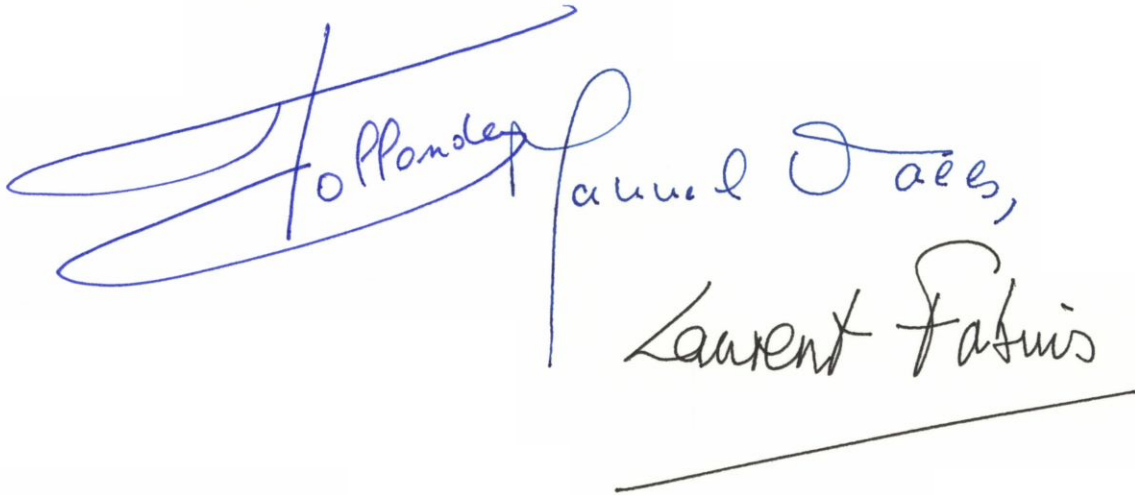 Hollande Manuel Valls,
Laurent Fabius